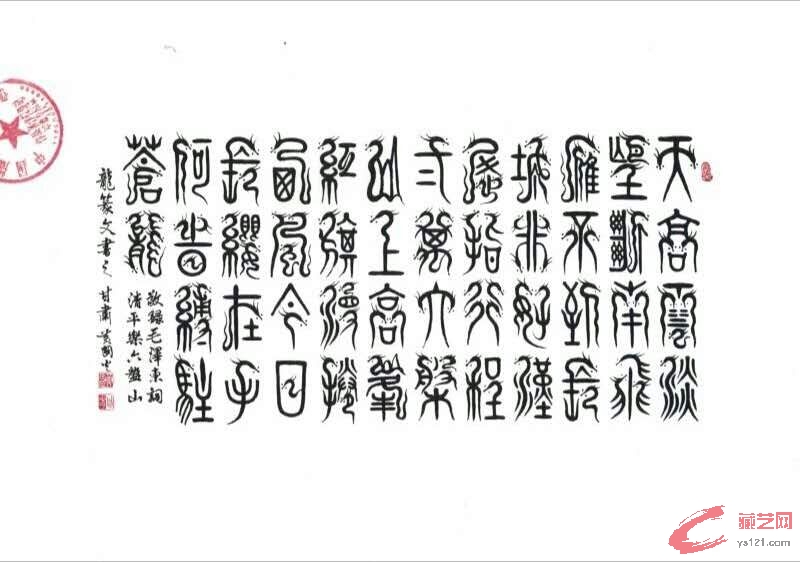 天高雲淡
望斷南飛
雁不到長
城非好漢
屈指行程
弍萬六盤
山上高峰
紅旗漫捲
西風今日
長纓在手
何時縛駐
蒼龍
敬錄毛澤東詞
清平樂六盤山
龍篆文書之 甘肅
藏艺网
ys121.com